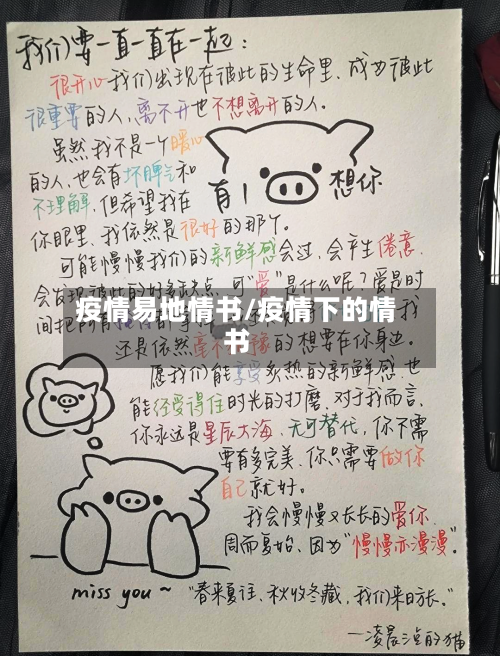 我们要一直一直在一起：
很开心我们出现在彼此的生命里、成为彼此
很重要的人，离不开也不想离开的人。
虽然我不是一个暖心
的人，也会有坏脾气和
不理解，但希望我在
有1想你
你眼里、我依然是很好的那个。
可能慢慢我们的新鲜感会过，会产生倦意，
可"爱"是什么呢？爱是时
间把所有
疫情易地情书/疫情下的情
书
我
还是依然毫不 的想要在你身边。
愿我们能享受炙热的新鲜感，也
能经受得住时光的打磨，对于我而言，
你永远是星辰大海，无可替代，你不需
要有多完美，你只需要做你
自己就好。
我会慢慢又长长的爱你，
周而复始，因为"慢慢亦漫漫"。
miss you~
"春来夏往，秋收冬藏，我们来日方长。"
—凌晨 的猫